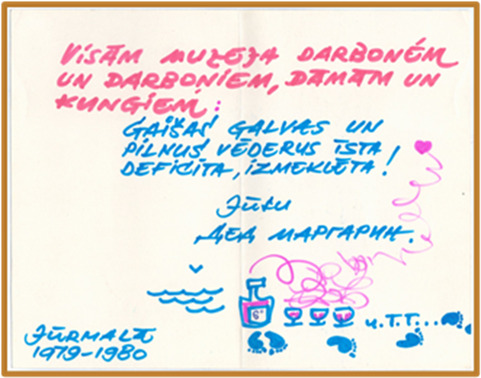 VISĀM MUZEJA DARBONĒM
UN DARBONIEM, DĀMĀM UN
KUNGIEM:
GAIŠAS GALVAS UN
PILNUS VĒDERUS ĪSTA
DEFICĪTA, IZMEKLĒTA!
Jūsu
ДЕД МАРГАРИН.
и.т.т...
JŪRMALĀ
1979-1980